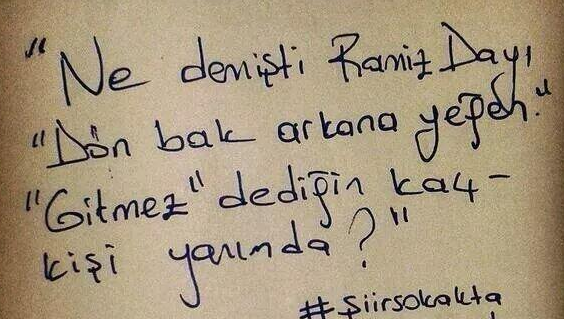 "Ne demişti Ramiz Dayı
"Dön bak arkana yeğen."
"Gitmez" dediğin kaç-
kişi yanında?"
#şiirsokakta